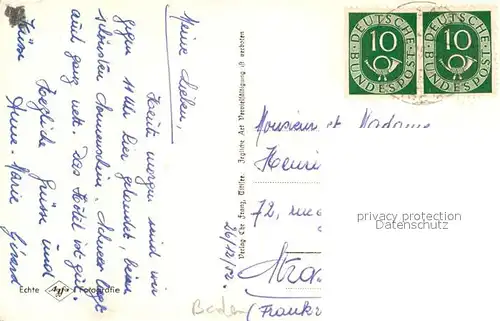 Meine Lieben,
Heute morgen sind wir
gegen 11 Uhr hier gelandet, beim
schönsten Sonnenschein. Schnee liegt
auch ganz nett. Das Hotel ist gut.
Herzliche Grüsse und
Küsse
Anne-Marie Gérard
Echte Agfa Photografie
Verlag Chr. Franz, Jegliche Art Vervielfältigung ist verboten
26/12/52.
DEUTSCHE BUNDESPOST 10
DEUTSCHE BUNDESPOST 10
Monsieur et Madame
Henri
72, rue
privacy protection
Datenschutz
Stra
Baden (Frankr